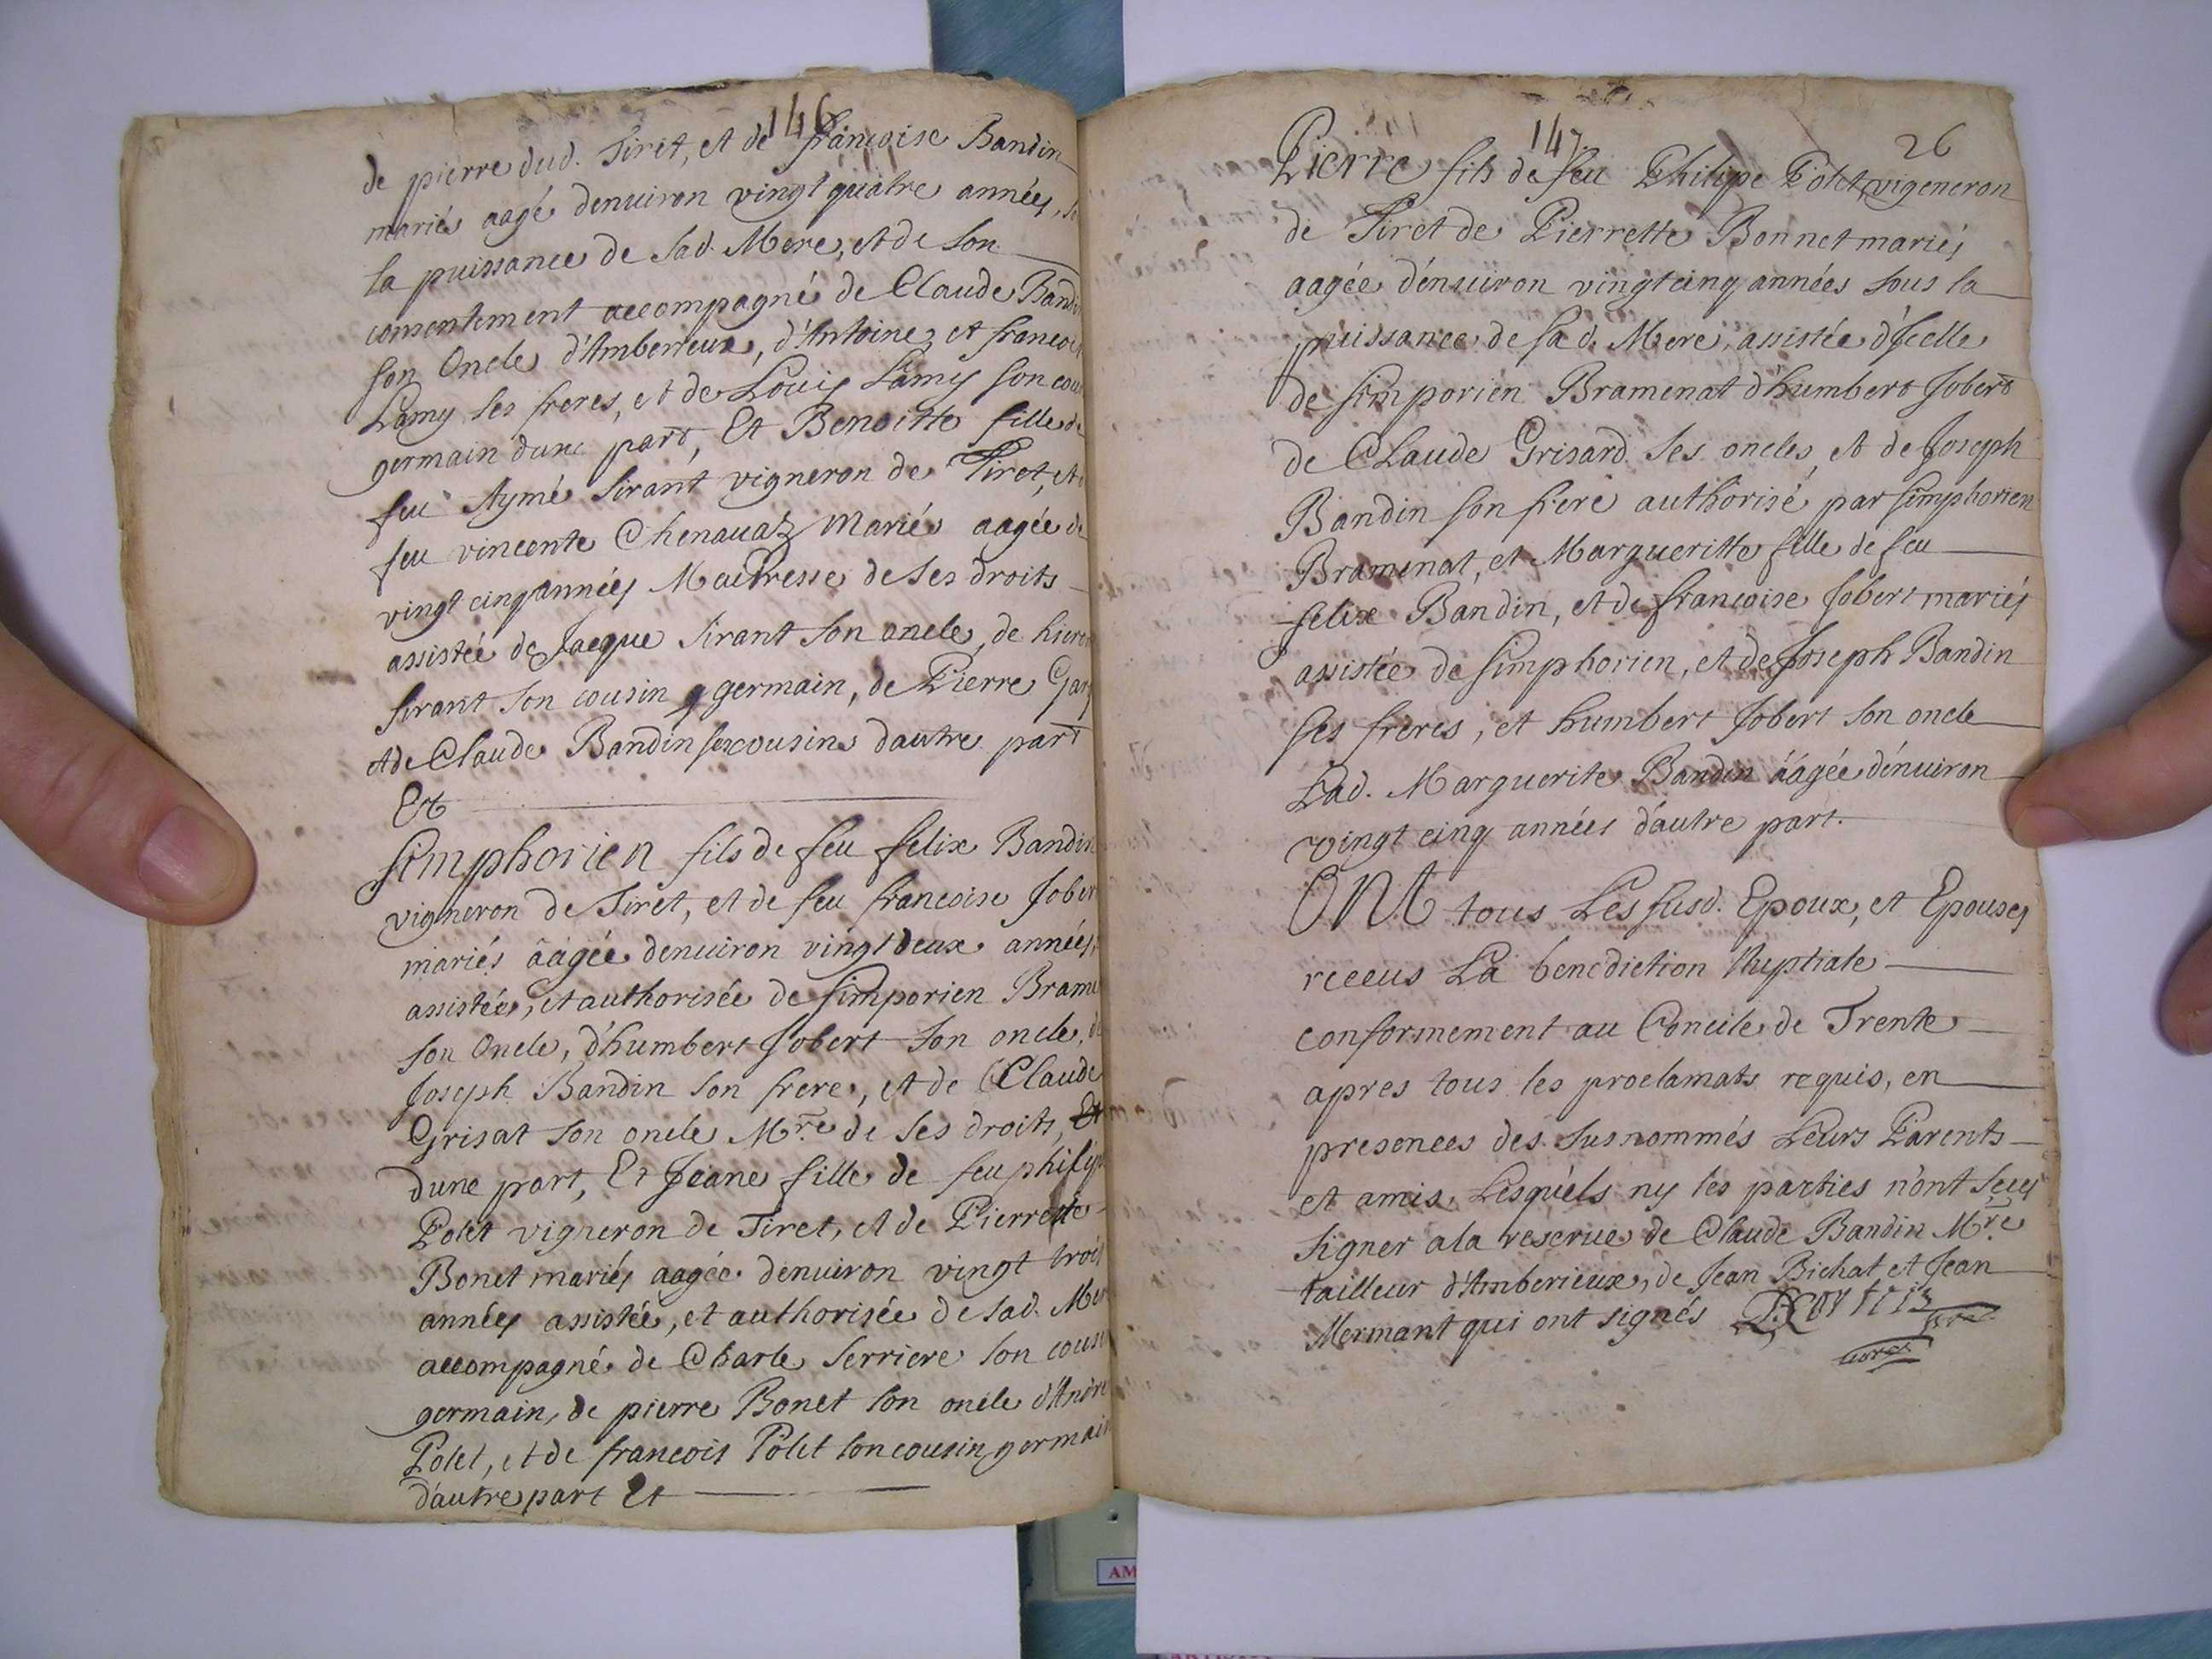 146
de pierre dud. Tiret, et de francoise Bandin
mariés aagé denuiron vingt quatre années,
la puissance de Sad. Mere, et de Son
consentement accompagné de Claude Bandin
son Oncle d'Amberieux, d'Antoine, et francois
Lamy ses freres, et de Louis Lamy son cou
germain dune part, Et Benoitte fille de
feu Aymé Sirant vigneron de Tiret, et
feu vincente Chenauaz Mariés aagée de
vingt cinq années Maitresse de Ses droits
assistée de Jacque Sirant Son oncle, de
Sirant Son cousin germain, de Pierre
et de Claude Bandin ses cousins dautre part
Et
Simphorien fils de feu felix Bandin
vigneron de Tiret, et de feu francoise Jober
mariés âagée denuiron vingt deux années,
assistée, et authorisée de Simporien Brame
son Oncle, d'humbert Jobert son oncle, de
Joseph Bandin Son frere, et de Claude
Grisat son oncle Mre de Ses droits,
dune part, Et Jeane fille de feu philip
Polet vigneron de Tiret, et de Pierrette
Bonet mariés aagée denuiron vingt trois
années assistée, et authorisée de Sad. Mer
accompagné de Charle Serriere son cousin
germain, de pierre Bonet son oncle d'André
Polet, et de francois Polet son cousin germain
d'autre part Et
147
26
Pierre fils de feu Philipe Polet vigeneron
de Tiret de Pierrette Bonnet mariés
aagée dénuiron vingt cinq années sous la
puissance de Sad. Mere, assistée d'Jcelle
de Simporien Bramenat d'humbert Jobert
de Claude Grisard Ses oncles, et de Joseph
Bandin son frere authorisé par Simphorien
Bramenat, et Margueritte fille de feu
felix Bandin, et de francoise Jobert mariés
assistée de Simphorien, et de Joseph Bandin
Ses freres, et humbert Jobert Son oncle
Lad. Marguerite Bandin âagée dénuiron
vingt cinq années d'autre part.
Ont tous Les susd. Epoux, et Epouses
receus La benediction Nuptiale
conformement au Concile de Trente
apres tous les proclamats requis, en
presences des susnommés Leurs Parents
et amis, Lesquels ny les parties n'ont Seus
Signer a la reserue de Claude Bandin Mre
tailleur d'Amberieux, de Jean Bichat et Jean
Mermant qui ont signés